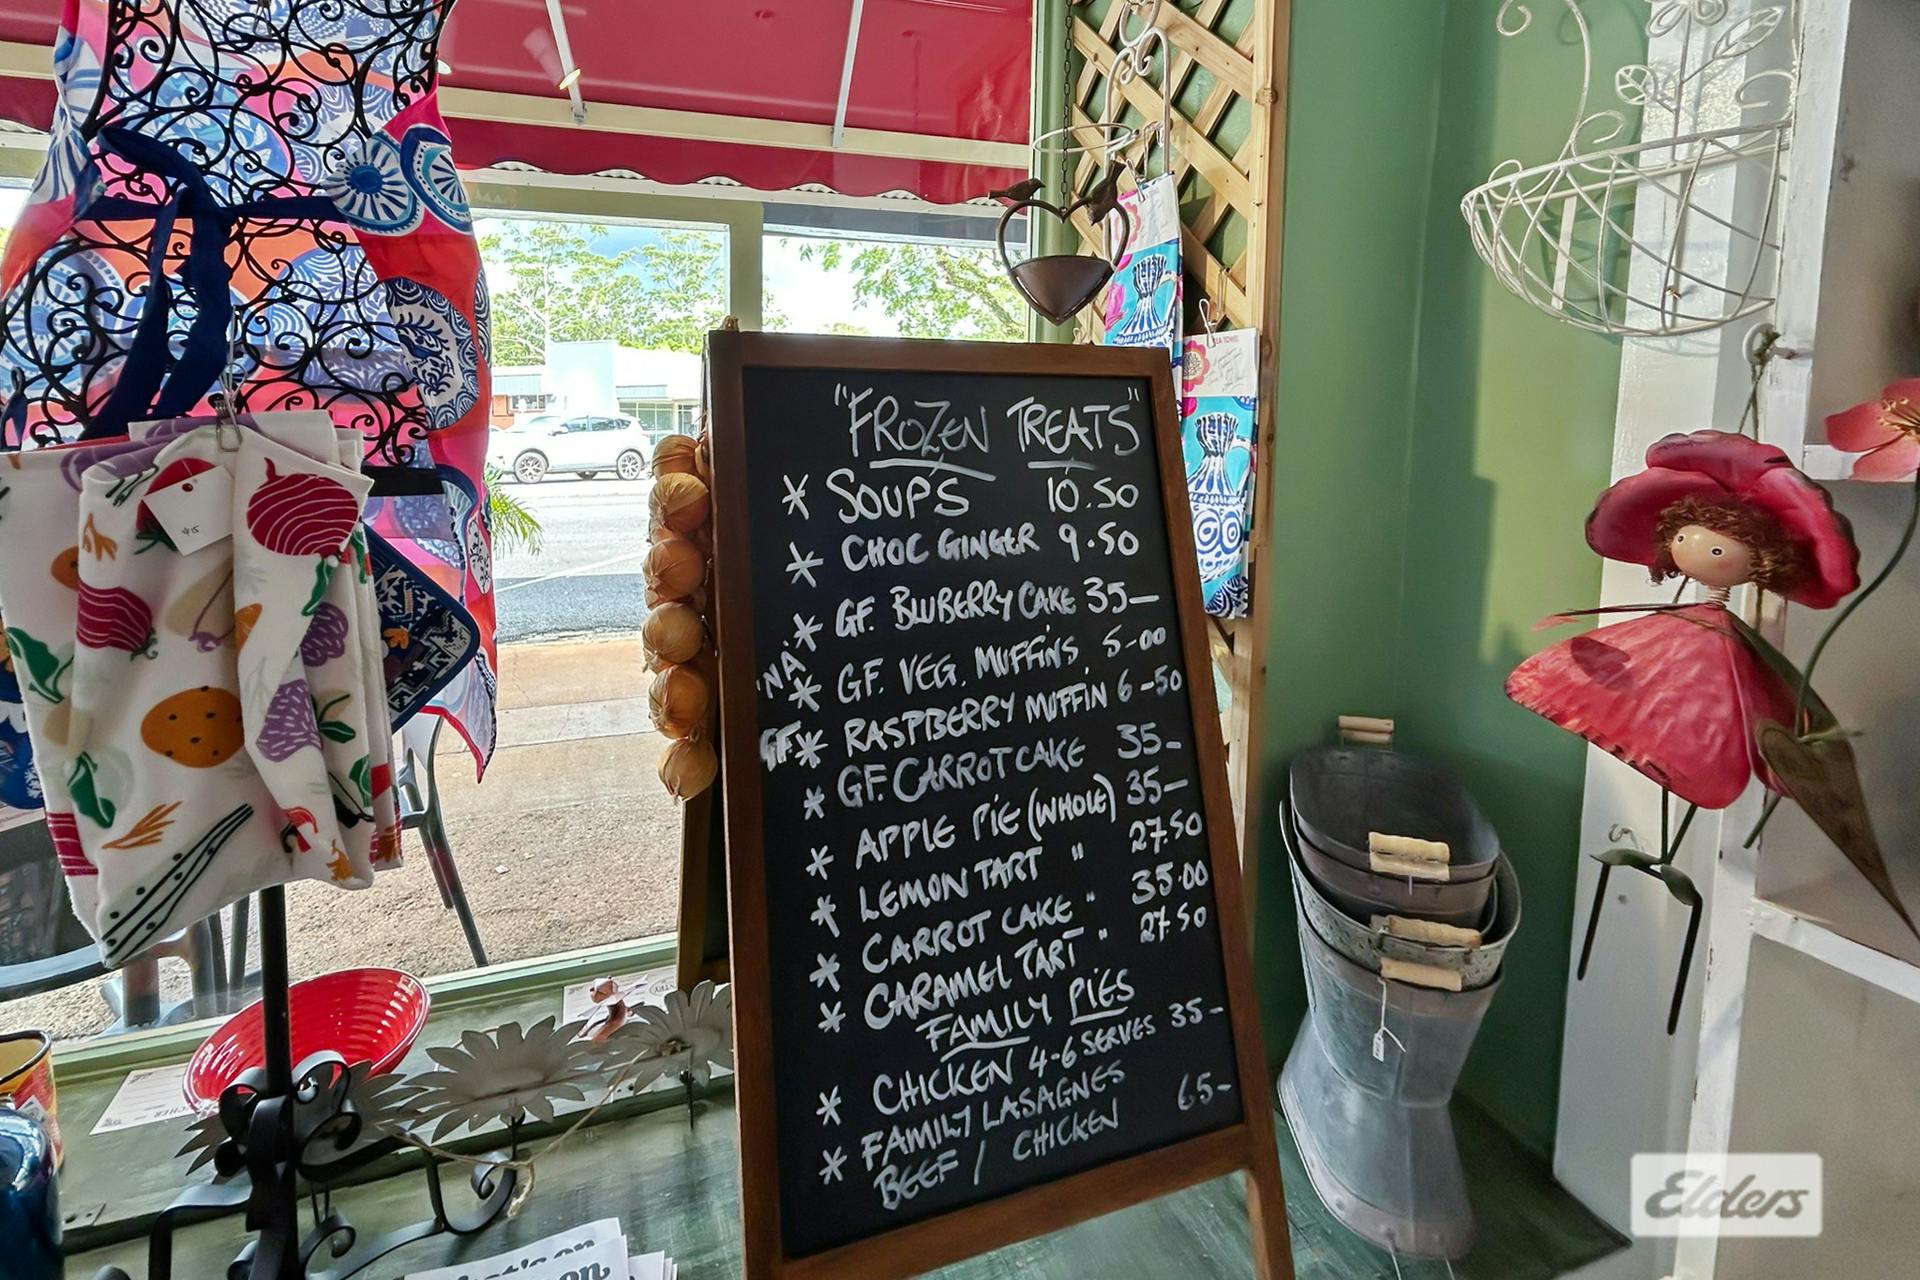 "FROZEN TREATS"
* SOUPS 10.50
* CHOC GINGER 9.50
* GF. BLUBERRY CAKE 35—
'NA' * GF. VEG. MUFFINS 5-00
GF * RASPBERRY MUFFIN 6-50
* GF. CARROT CAKE 35-
* APPLE PIE (WHOLE) 35—
* LEMON TART " 27.50
* CARROT CAKE " 35.00
* CARAMEL TART " 27.50
FAMILY PIES
* CHICKEN 4-6 SERVES 35-
* FAMILY LASAGNES
BEEF / CHICKEN 65-
$15
Elders